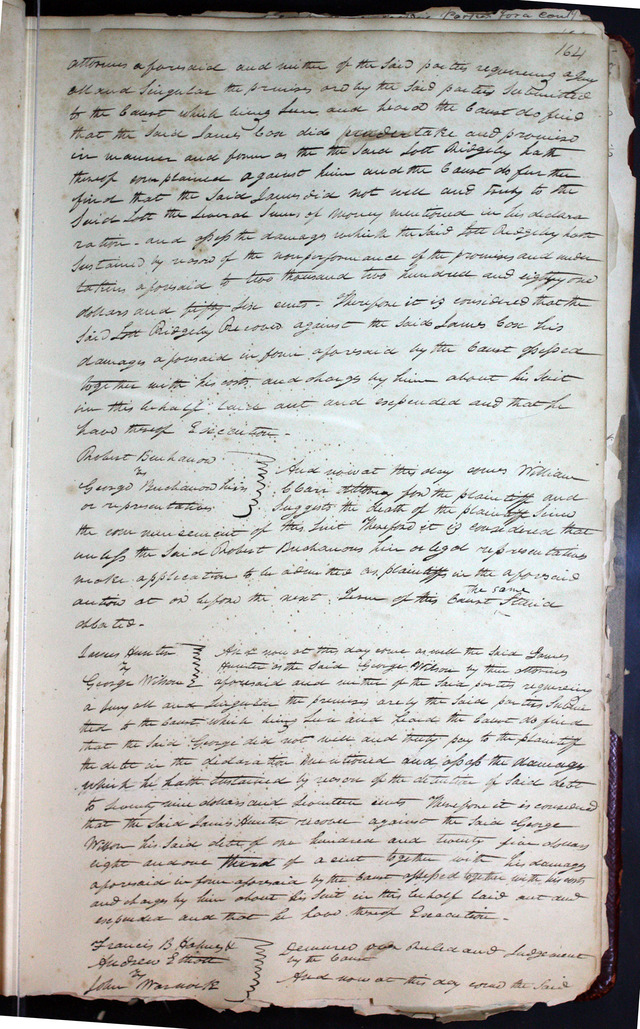 164
attornies aforesaid and neither of the said parties requiring a Jury
all and Singular the premises are by the Said parties Submitted
to the Court which being Seen and heard the Court do find
that the Said James Cox did undertake and promise
in manner and form as the the Said Lott Ridgeley hath
thereof complained against him and the Court do further
find that the Said James did not well and truly to the
Said Lott the Several Sums of money mentioned in his declara
ration - and assess the damages which the Said Lott Ridgeley hath
Sustained by reason of the nonperformance of the promises and under
takens aforesaid to two thousand two hundred and eighty one
dollars and fifty Six cents. Therefore it is considered that the
Said Lott Ridgeley Recover against the Said James Cox his
damages aforesaid in form aforesaid by the Court assessed
together with his costs and charges by him about his Suit
in this behalf laid out and expended and that he
have thereof Execution -
Robert Buchanon
vs
George Buchanon heirs
or representatives
And now at this day comes William
C Carr Attorney for the plaintiff and
Suggests the death of the plaintiff Since
the commencement of this Suit Therefore it is considered that
unless the Said Robert Buchanons heir or legal representatives
make application to be admitted as plaintiffs in the aforesaid
action at or before the next Term of this Court the same Stand
abated -
James Hunter
vs
George Wilson
And now at this day come as well the Said James
Hunter as the Said George Wilson by their attornies
aforesaid and neither of the Said parties requireing
a Jury all and Singular the premises are by the Said parties Submit
ted to the Court which being Seen and heard the Court do find
that the Said George did not well and truly pay to the plaintiff
the debt in the declaration mentioned and assess the damages
which he hath Sustained by reason of the detention of Said debt
to Seventy nine dollars and Seventeen cents Therefore it is considered
that the Said James Hunter recover against the Said George
Wilson his Said debt of one hundred and twenty four dollars
eight and one third of a cent together with his damages
aforesaid in form aforesaid by the Court assessed together with his costs
and charges by him about his Suit in this behalf laid out and
expended and that he have thereof Execution -
Francis B
Andrew Elliott
vs
John Warnock
Demurrer over Ruled and Judgement
by the Court
And now at this day comes the Said